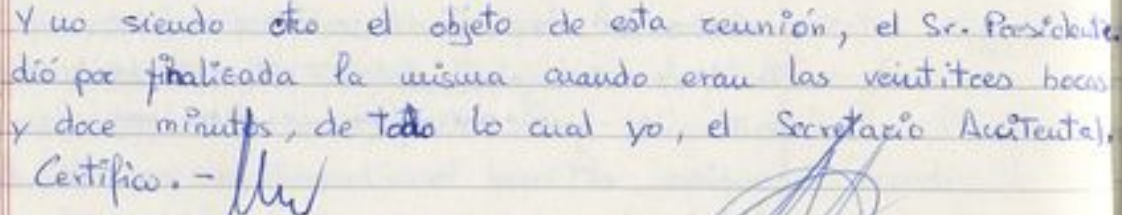 Y no siendo otro el objeto de esta reunión, el Sr. Presidente.
dió por finalizada la misma cuando eran las veintitres horas
y doce minutos, de todo lo cual yo, el Secretario Accitental,
Certifico. -